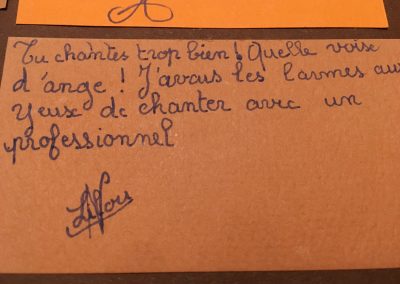 Tu chantes trop bien ! Quelle voise
d'ange ! J'avais les larmes aux
yeux de chanter avec un
professionnel